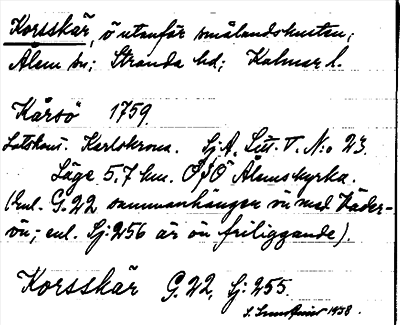 Korsskär, ö utanför smålandskusten;
Ålem sn; Stranda hd; Kalmar l.
Kårsö 1759.
Lotskont. Karlskrona. Sj.A. Litt. V. N:o 23.
Läge 5.7 km. OSO Ålems kyrka.
(Enl. G. 22 sammanhänger ön med Väder-
ön; enl. Sj: 256 är ön friliggande).
Korsskär G. 22, Sj: 255.
1938.